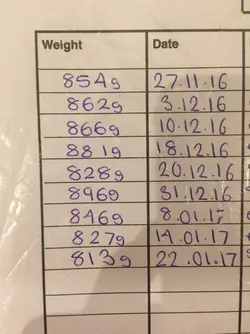 Weight Date
854g 27.11.16
862g 3.12.16
866g 10.12.16
881g 18.12.16
828g 20.12.16
896g 31.12.16
846g 8.01.17
827g 14.01.17
813g 22.01.17